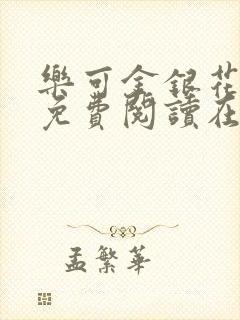 樂可金銀花
免費閱讀在
孟繁華